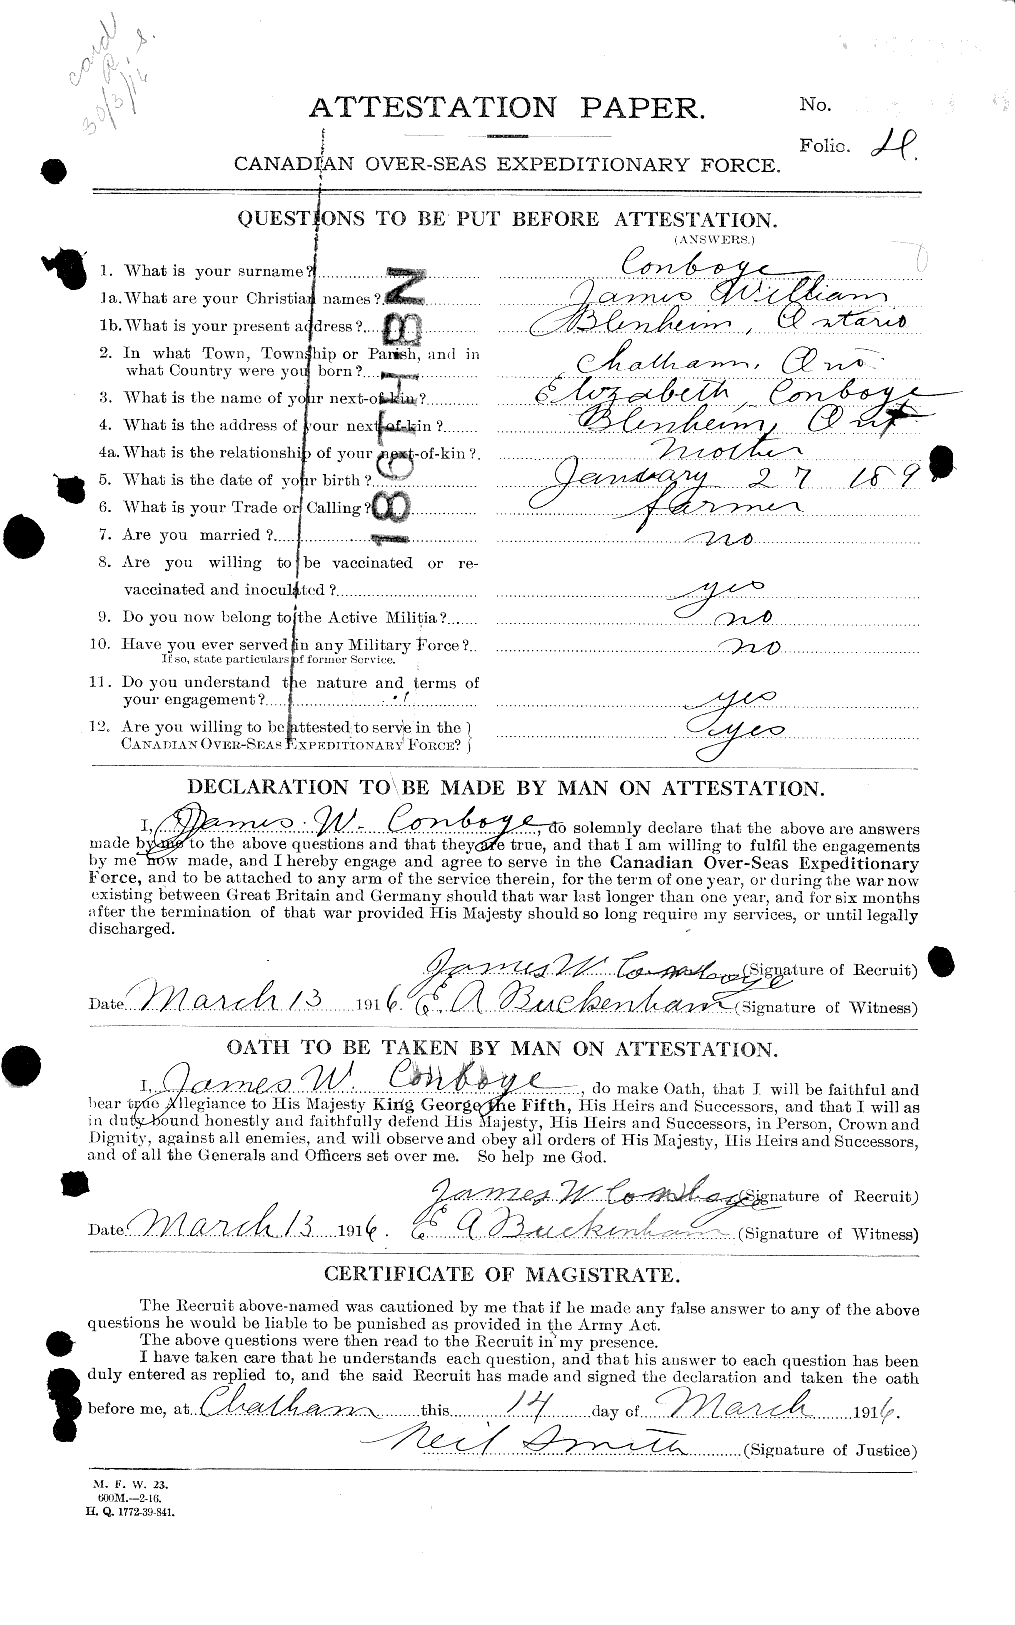 card
R. S.
30/3/16
ATTESTATION PAPER.
No.
Folio.
CANADIAN OVER-SEAS EXPEDITIONARY FORCE.
QUESTIONS TO BE PUT BEFORE ATTESTATION.
(ANSWERS.)
1. What is your surname? Conboye
1a. What are your Christian names? James William
1b. What is your present address? Blenheim, Ontario
2. In what Town, Township or Parish, and in
what Country were you born? Chatham, Ont
3. What is the name of your next-of-kin? Elizabeth, Conboye
4. What is the address of your next-of-kin? Blenheim, Ont
4a. What is the relationship of your next-of-kin? Mother
5. What is the date of your birth? January 27 189
6. What is your Trade or Calling? farmer
7. Are you married? no
8. Are you willing to be vaccinated or re-
vaccinated and inoculated? yes
9. Do you now belong to the Active Militia? no
10. Have you ever served in any Military Force? no
If so, state particulars of former Service.
11. Do you understand the nature and terms of
your engagement? yes
12. Are you willing to be attested to serve in the
CANADIAN OVER-SEAS EXPEDITIONARY FORCE? yes
186TH BN
DECLARATION TO BE MADE BY MAN ON ATTESTATION.
I, James W. Conboye, do solemnly declare that the above are answers
made by me to the above questions and that they are true, and that I am willing to fulfil the engagements
by me now made, and I hereby engage and agree to serve in the Canadian Over-Seas Expeditionary
Force, and to be attached to any arm of the service therein, for the term of one year, or during the war now
existing between Great Britain and Germany should that war last longer than one year, and for six months
after the termination of that war provided His Majesty should so long require my services, or until legally
discharged.
James W Conboye (Signature of Recruit)
Date March 13 1916. E. A Buckenham (Signature of Witness)
OATH TO BE TAKEN BY MAN ON ATTESTATION.
I, James W. Conboye, do make Oath, that I will be faithful and
bear true Allegiance to His Majesty King George the Fifth, His Heirs and Successors, and that I will as
in duty bound honestly and faithfully defend His Majesty, His Heirs and Successors, in Person, Crown and
Dignity, against all enemies, and will observe and obey all orders of His Majesty, His Heirs and Successors,
and of all the Generals and Officers set over me. So help me God.
James W Conboye (Signature of Recruit)
Date March 13 1916. E A Buckenham (Signature of Witness)
CERTIFICATE OF MAGISTRATE.
The Recruit above-named was cautioned by me that if he made any false answer to any of the above
questions he would be liable to be punished as provided in the Army Act.
The above questions were then read to the Recruit in my presence.
I have taken care that he understands each question, and that his answer to each question has been
duly entered as replied to, and the said Recruit has made and signed the declaration and taken the oath
before me, at Chatham this 14 day of March 1916.
Neil Smith (Signature of Justice)
M. F. W. 23.
600M.—2-16.
H. Q. 1772-39-841.